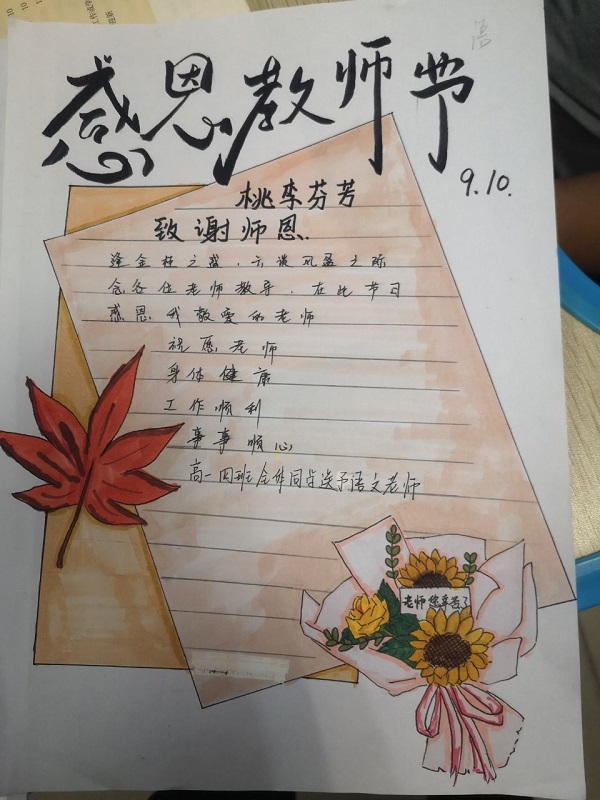 感恩教师节
9.10.
桃李芬芳
致谢师恩.
逢金桂之盛,六
念各任老师教导,在此节日
感恩我敬爱的老师
祝愿老师
身体健康
工作顺利
事事顺心
高一四班全体同学送予语文老师
老师您辛苦了
语